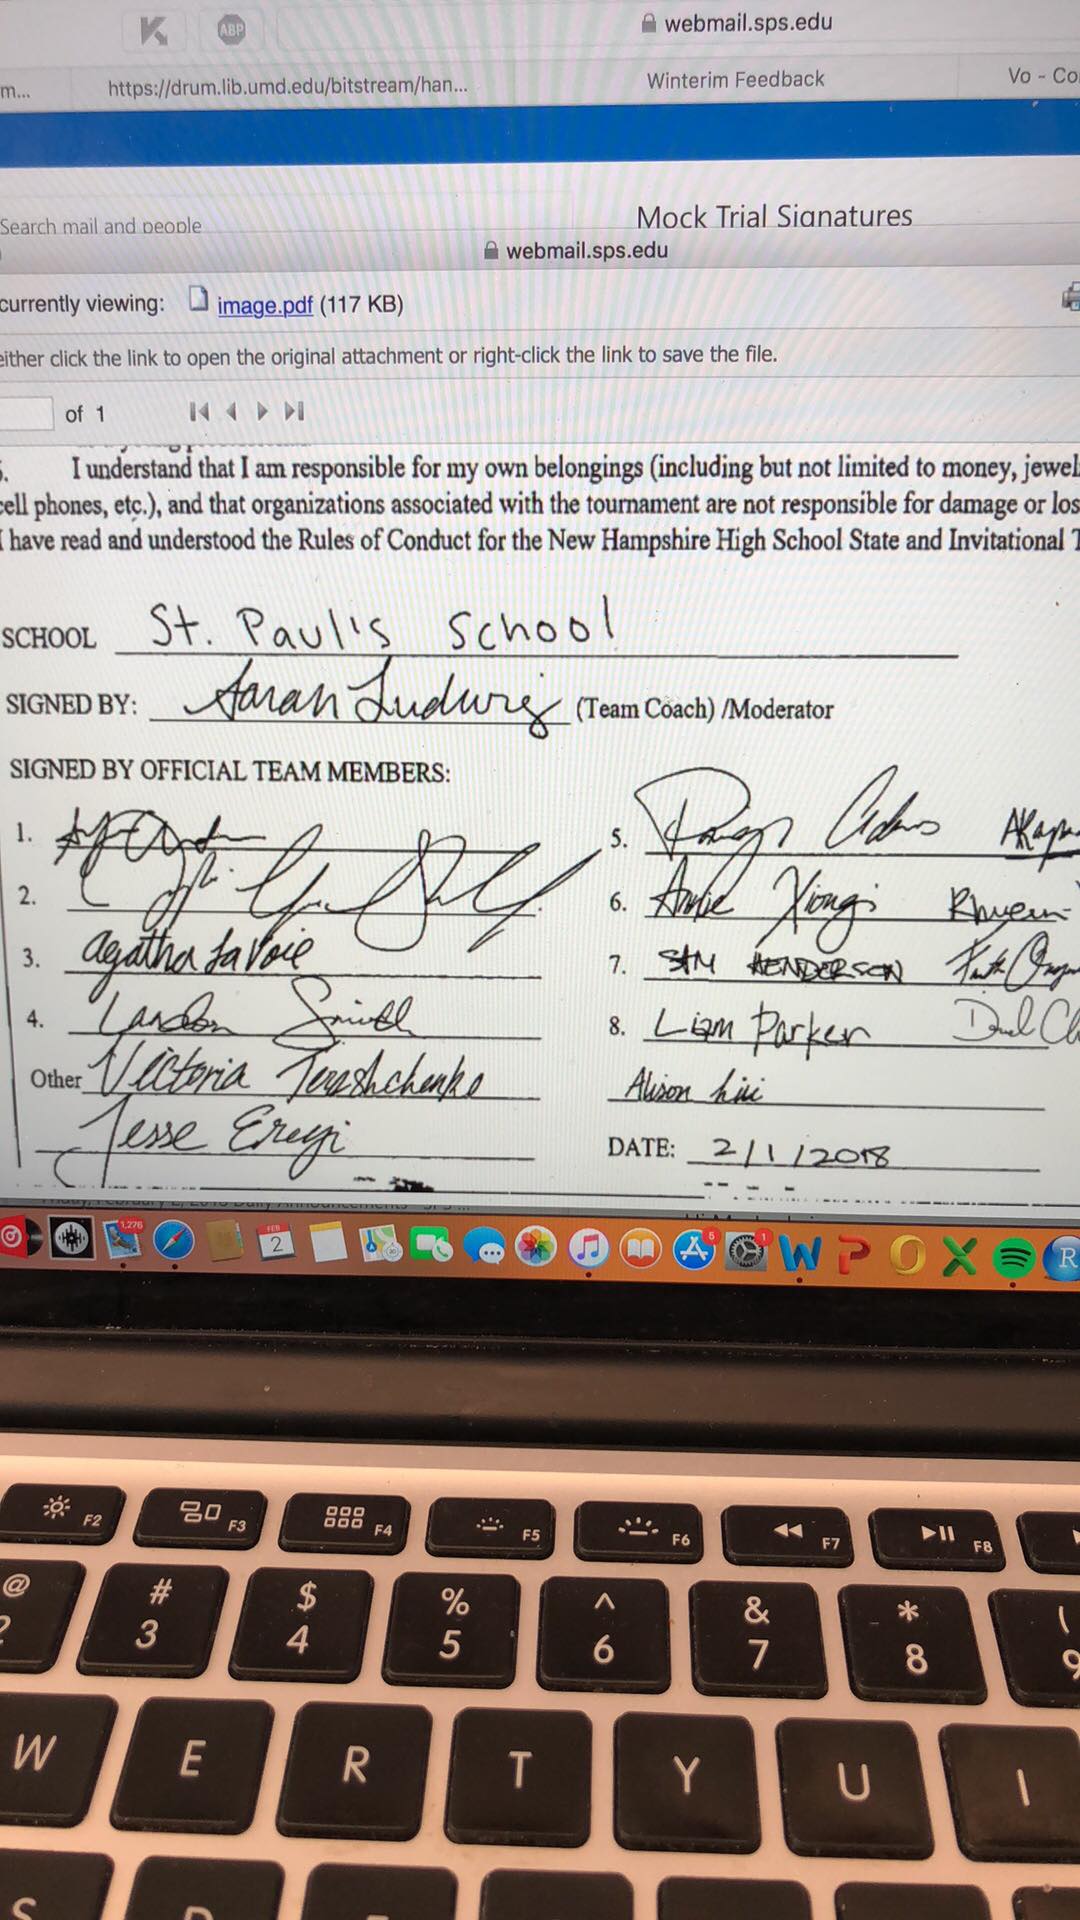 ABP webmail.sps.edu
m... https://drum.lib.umd.edu/bitstream/han... Winterim Feedback Vo - Co
Search mail and people Mock Trial Signatures
webmail.sps.edu
currently viewing: image.pdf (117 KB)
either click the link to open the original attachment or right-click the link to save the file.
of 1
5. I understand that I am responsible for my own belongings (including but not limited to money, jewel
cell phones, etc.), and that organizations associated with the tournament are not responsible for damage or los
I have read and understood the Rules of Conduct for the New Hampshire High School State and Invitational T
SCHOOL St. Paul's School
SIGNED BY: Sarah Ludwig (Team Coach) /Moderator
SIGNED BY OFFICIAL TEAM MEMBERS:
1.
2.
3. Agatha LaVoie
4. Landon Smith
Other Victoria
Jesse
5.
6. Xiong
7. SAM HENDERSON
8. Liam Parker
Alison
DATE: 2/1/2018
1,276 FEB 2 5 1 W P O X R
F2 F3 F4 F5 F6 F7 F8
@ # 3 $ 4 % 5 ^ 6 & 7 * 8 ( 9
W E R T Y U I
S D